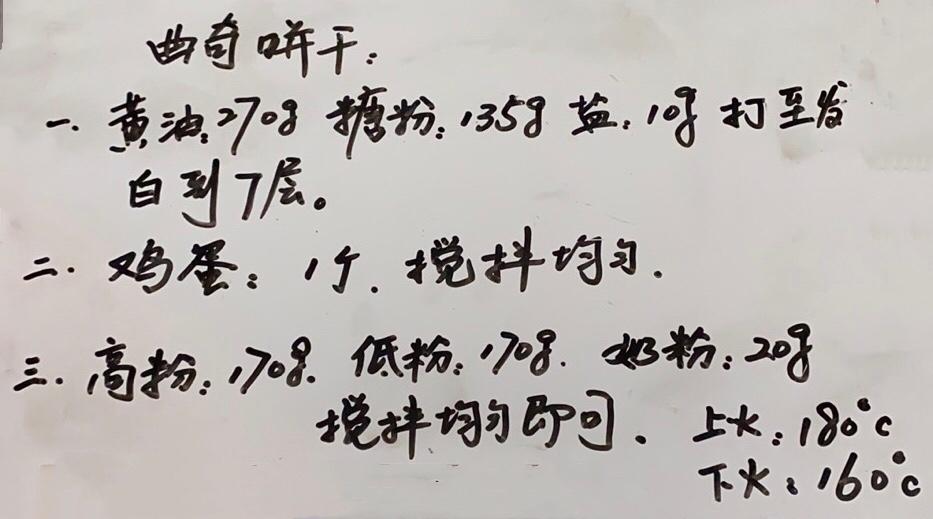 曲奇哣干：
一. 黄油：270g 糖粉：135g 盐：10g 打至发
白到7层。
二. 鸡蛋：1个. 搅拌均匀.
三. 高粉：170g. 低粉：170g. 奶粉：20g
搅拌均匀即可. 上火：180°c
下火：160°c